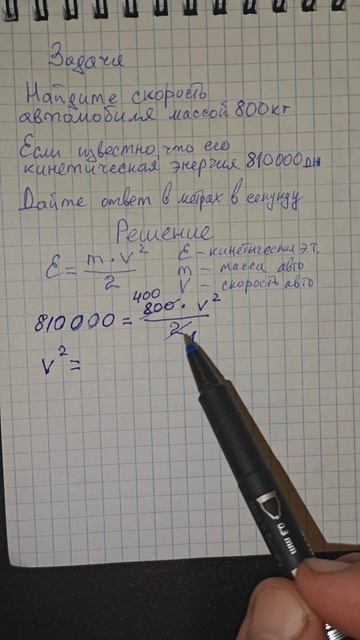 Задача
Найдите скорость
автомобиля массой 800кг
Если известно, что его
кинетическая энергия 810000дж
Дайте ответ в метрах в секунду
Решение
E = m · v² / 2
E – кинетическая э.т.
m – масса авто
V – скорость авто
400
810000 = 800 · v² / 2
1
v² =
0.3 mm